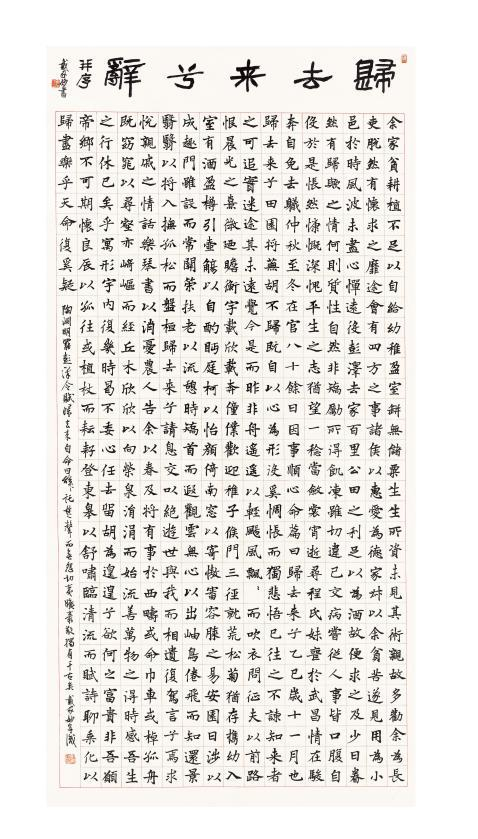 歸去来兮辭
并序
戴家妙書
余家貧耕植不足以自給幼稚盈室缾無儲粟生生所資未見其術親故多勸余為長
吏脱然有懷求之靡途會有四方之事諸侯以惠愛為德家叔以余貧苦遂見用為小
邑於時風波未靜心憚遠役彭澤去家百里公田之利足以為酒故便求之及少日眷
然有歸歟之情何則質性自然非矯勵所得飢凍雖切違己交病嘗從人事皆口腹自
役於是悵然慷慨深愧平生之志猶望一稔當斂裳宵逝尋程氏妹喪於武昌情在駿
奔自免去職仲秋至冬在官八十餘日因事順心命篇曰歸去来兮乙巳歲十一月也
歸去来兮田園將蕪胡不歸既自以心為形役奚惆悵而獨悲悟已往之不諫知来者
之可追實迷途其未遠覺今是而昨非舟遥遥以輕颺風飄飄而吹衣問征夫以前路
恨晨光之熹微乃瞻衡宇載欣載奔僮僕歡迎稚子候門三徑就荒松菊猶存攜幼入
室有酒盈樽引壺觴以自酌眄庭柯以怡顏倚南窗以寄傲審容膝之易安園日涉以
成趣門雖設而常關策扶老以流憩時矯首而遐觀雲無心以出岫鳥倦飛而知還景
翳翳以將入撫孤松而盤桓歸去来兮請息交以絶遊世與我而相遺復駕言兮焉求
悦親戚之情話樂琴書以消憂農人告余以春及將有事於西疇或命巾車或棹孤舟
既窈窕以尋壑亦崎嶇而經丘木欣欣以向榮泉涓涓而始流善萬物之得時感吾生
之行休已矣乎寓形宇内復幾時曷不委心任去留胡為遑遑兮欲何之富貴非吾願
帝鄉不可期懷良辰以孤往或植杖而耘耔登東皋以舒嘯臨清流而賦詩聊乘化以
歸盡樂乎天命復奚疑
陶渊明罷彭澤令賦歸去来自命曰辭託楚聲而無怨切千古矣戴家妙并識